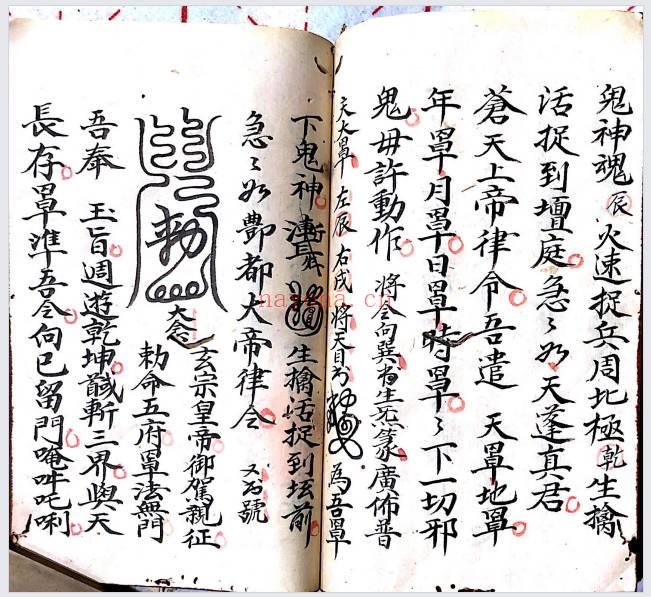 鬼神魂辰火速捉兵周北極乾生擒
活捉到壇庭急〻如天蓬真君
蒼天上帝律令吾遣 天罩地罩
年罩月罩日罩時罩〻下一切邪
鬼毋許動作將令向巽省生炁篆廣佈普
天大罩 左辰右戌將天目書 為吾罩
下鬼神 生擒活捉到坛前
急〻如酆都大帝律令 又為號
勅
大念
玄宗皇帝御駕親征
勅命五府罩法無門
吾奉 玉旨週遊乾坤 斬三界與天
長存罩準吾令向巳留門唵吽吒唎